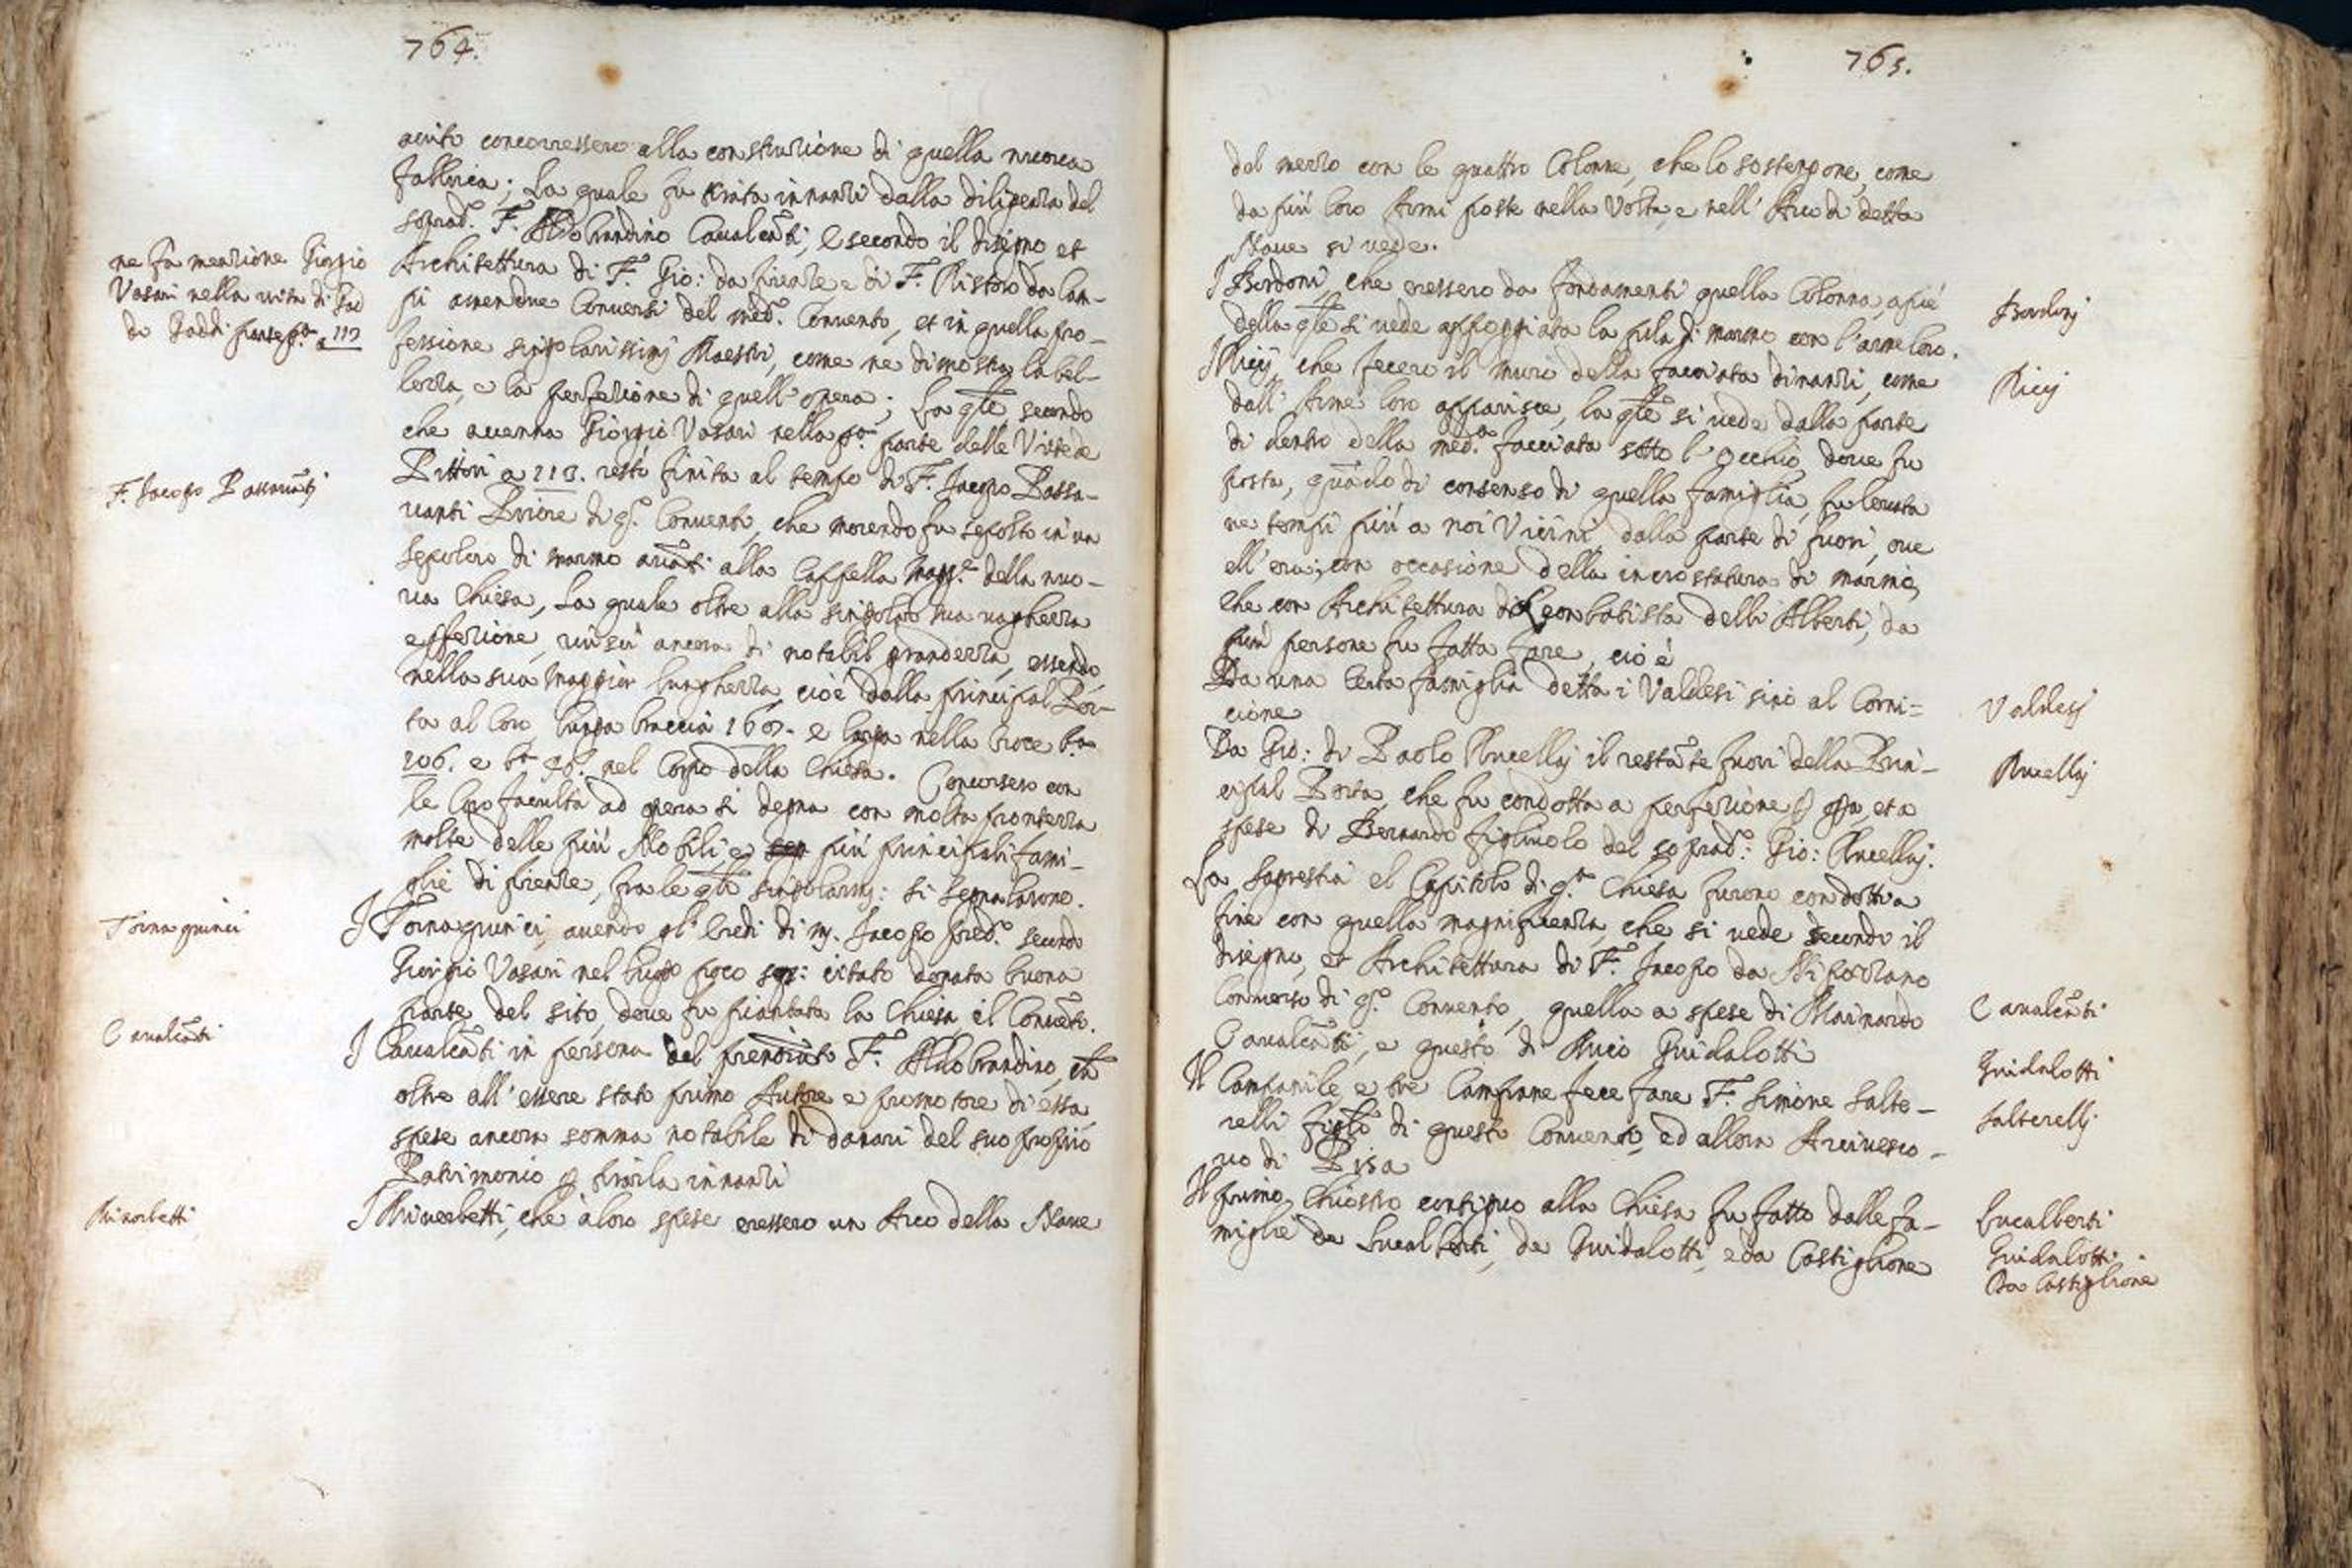 764.
aiuto concorressero alla construzione di quella nuova
fabbrica; La quale fu tirata innanzi dalla diligenza del
soprad.º F. Aldobrandino Cavalcāti, e secondo il disegno, et
ne fa menzione Giorgio
Vasari nella vita di Gad
do Gaddi parte p.ª a 113
Architettura di F. Gio: da firenze e di F. Ristoro da Cam-
pi amendue Conversi del med.º Convento, et in quella pro-
fessione singolarissimj Maestri, come ne dimostra la bel-
lezza, e la perfezione di quell'opera; La q̄le secondo
che avenna Giorgio Vasari nella p.ª parte delle Vite de
Pittori a 113. restò finita al tempo di F. Jacopo Passa-
F. Jacopo Passavātj
vanti Priore di q.º Convento, che morendo fu sepolto in un
sepolcro di marmo avāti alla Cappella Magg.e della nuo-
va Chiesa, La quale oltre alla singolar sua vaghezza
e pfezione, riuscì ancora di notabil grandezza, essendo
nella sua maggior lunghezza, cioè dalla principal Por-
ta al Coro, lunga braccia 167. e larga nella Croce b.a
106. e b.a 46. nel Corpo della Chiesa. Concorsero con
le loro facultà ad opera sì degna con molta prontezza
molte delle più Nobili, e più principali fami-
glie di firenze, fra le q̄li singolarm: si segnalarono.
Tornaquinci
I Tornaquinci, avendo gl'eredi di m. Jacopo pred.º secondo
Giorgio Vasari nel luogo poco sop: citato donata buona
parte del sito, dove fu piantata la Chiesa, e'l Convēto.
Cavalcāti
I Cavalcāti in persona del prenōiato F. Aldobrandino, ch̄
oltre all'essere stato primo Autore e promotore di essa
spese ancora somma notabile di danari del suo proprio
Patrimonio p tirarla innanzi
Minorbetti
I Minerbetti, che à loro spese eressero un Arco della Nave
765.
del mezzo con le quattro Colonne, che lo sostengone, come
da più loro Armi poste nella Volta, e nell'Arco di detta
Nave si vede.
I Bordoni, che eressero da fondamenti quella Colonna, apiè
Bordonj
della q̄le si vede appoggiata la pila di marmo con l'arme loro.
I Ricij, che fecero il muro della facciata dinanzi, come
Ricij
dall'Arme loro apparisce, la q̄le si vede dalla parte
di dentro della med.ª facciata sotto l'Occhio, dove fu
posta, quādo di consenso di quella famiglia, fu levata
ne tempi più a noi Vicini dalla parte di fuori, ove
ell'era, con occasione della incrostatura di marmo,
che con Architettura di Leonbatista delli Alberti, da
più persone fu fatta fare, cio è
Da una Certa famiglia detta i Valdesi sino al Corni=
Valdesj
cione
Da Gio: di Paolo Rucellaj il restāte fuori della Prin-
Rucellaj
cipal Porta, che fu condotta a perfezione p op̄a, et a
spese di Bernardo figliuolo del soprad.º Gio: Rucellaj.
La Sagrestia e'l Capitolo di q.ª Chiesa furono condotti a
fine con quella magnificenza, che si vede secondo il
disegno, et Architettura di F. Jacopo da Nipozzano
Converso di q.º Convento, quella a spese di Mainardo
Cavalcāti
Cavalcāti, e questo di Buio Guidalotti
Guidalotti
Il Campanile e tre Campane fece fare F. Simone Salte-
Salterellj
relli figl.º di questo Convento, ed allora Arcivesco-
vo di Pisa
Il primo Chiostro contiguo alla Chiesa fu fatto dalle fa-
Lucalberti
miglie de Lucalberti, de Guidalotti, e da Castiglione
Guidalotti
Da Castiglione